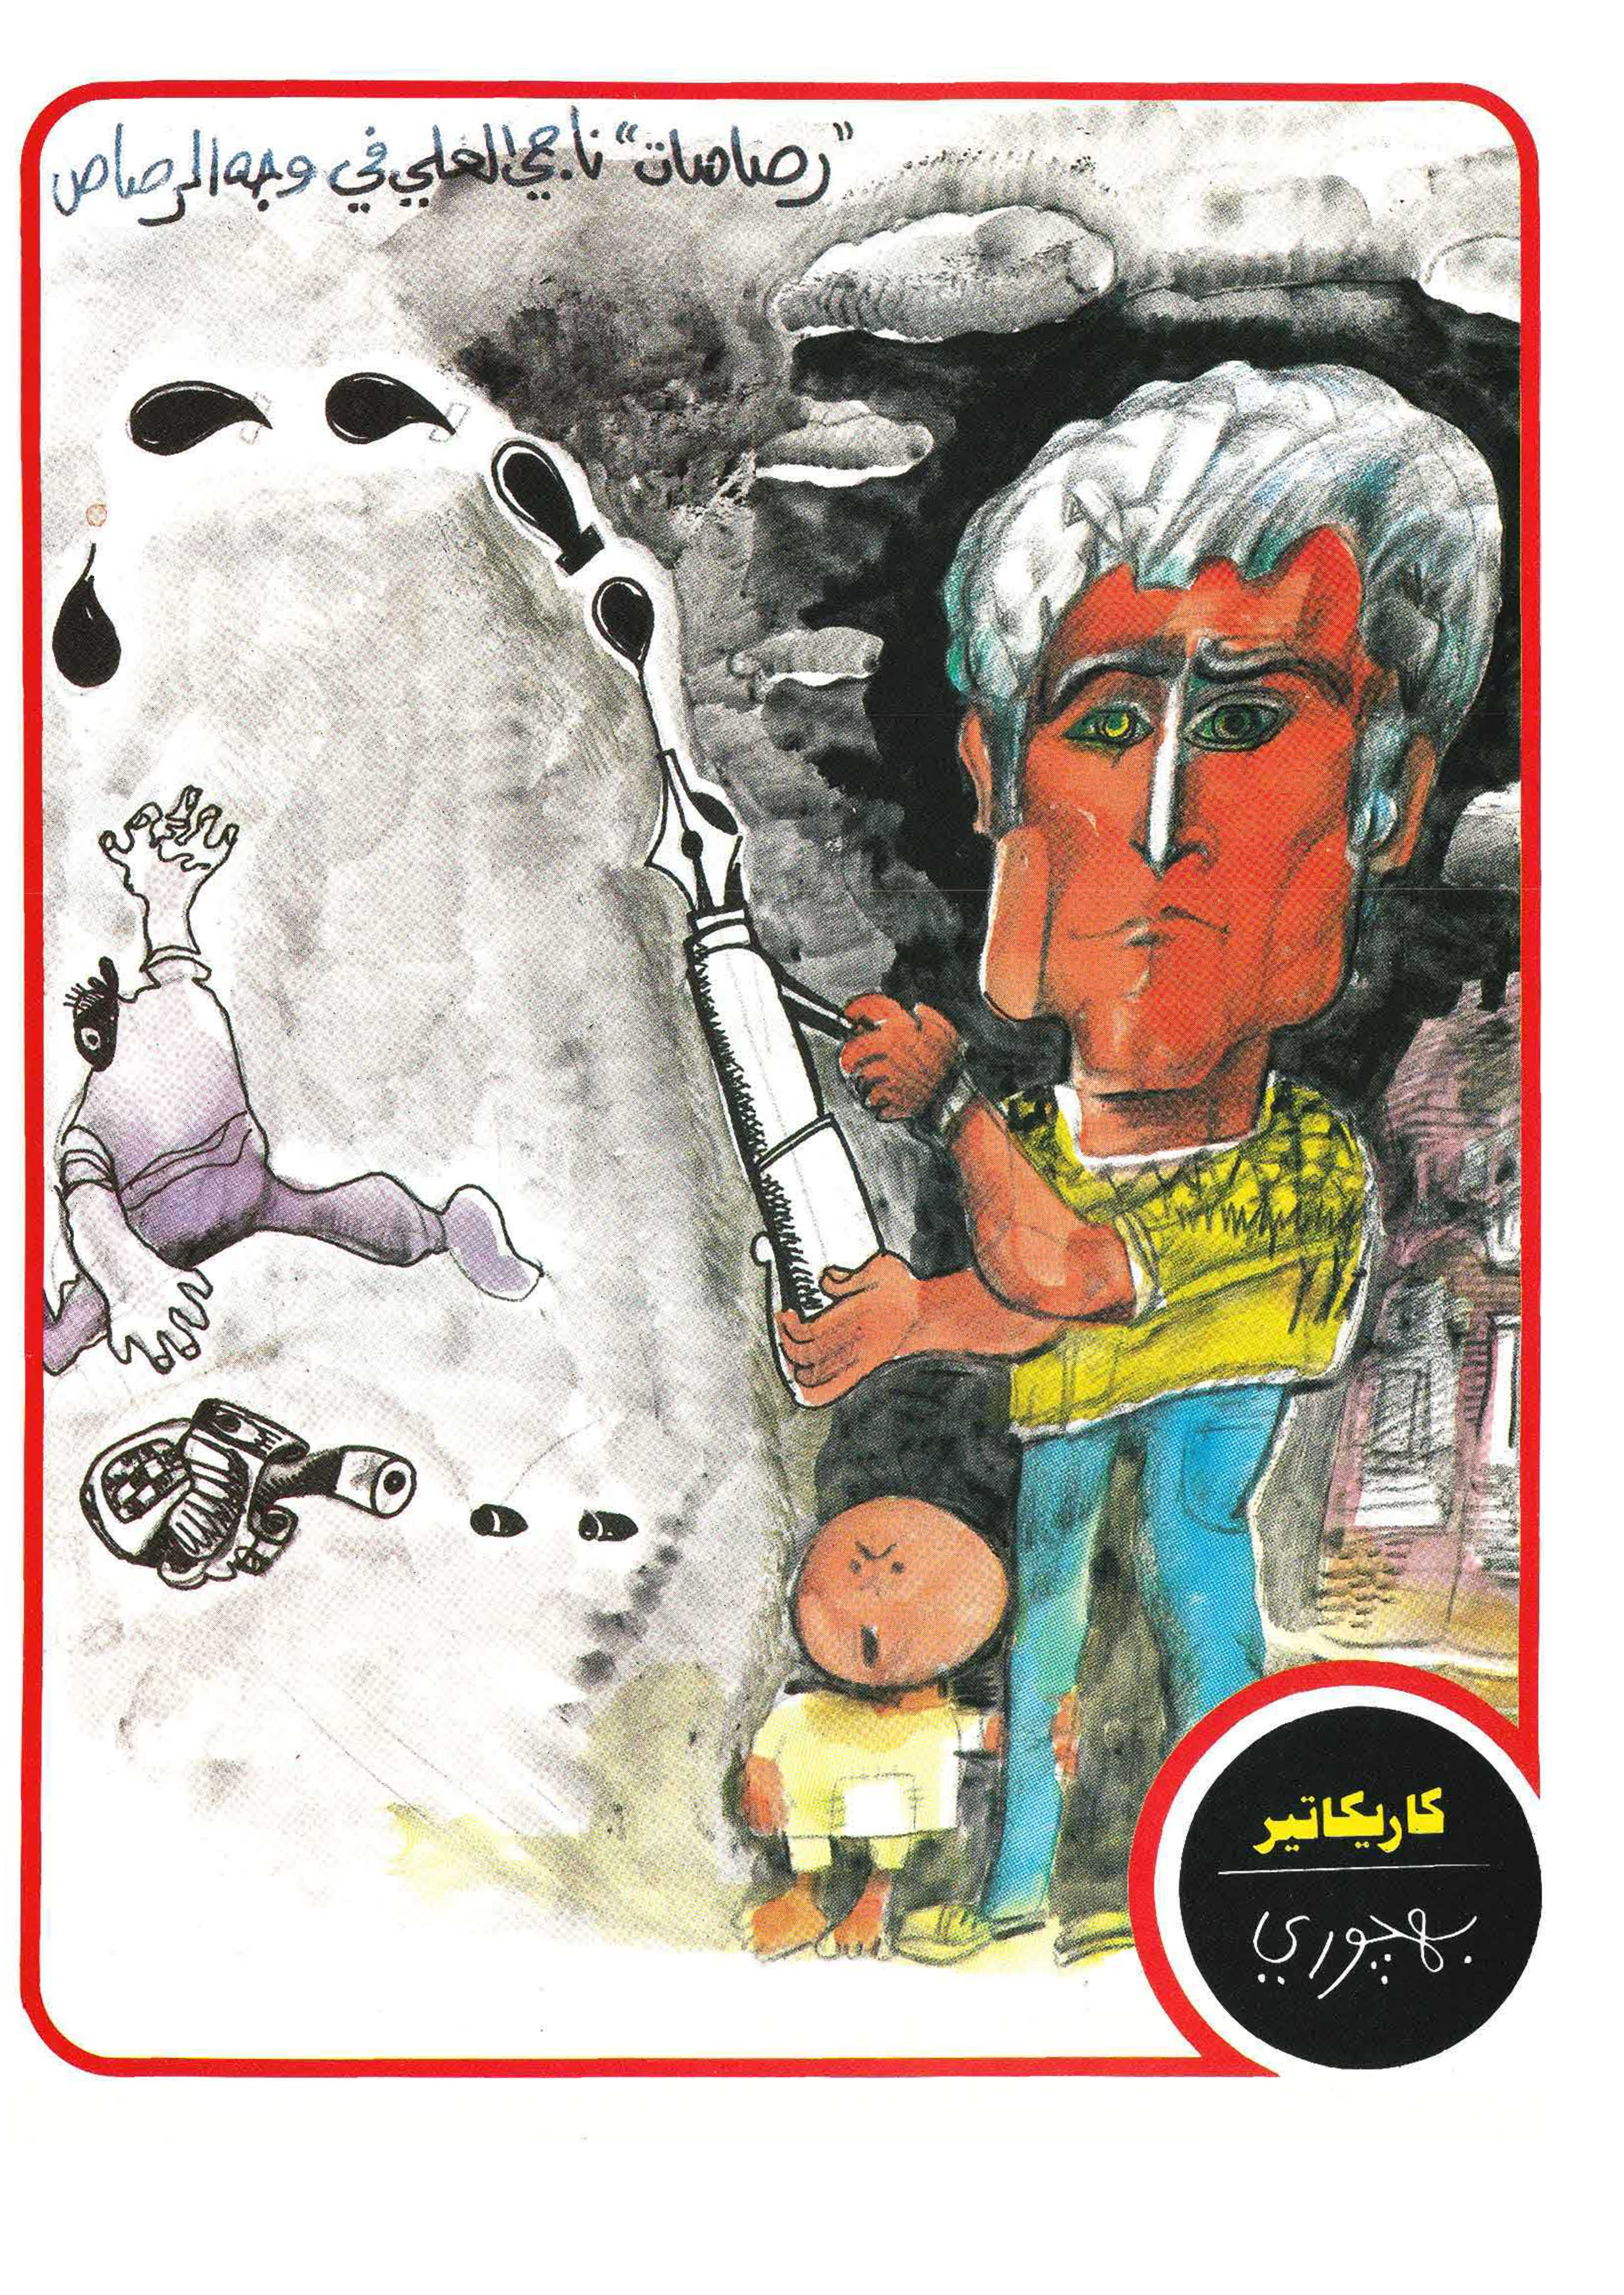 ”رصاصات“ ناجي العلي في وجه الرصاص
كاريكاتير
بهجوري